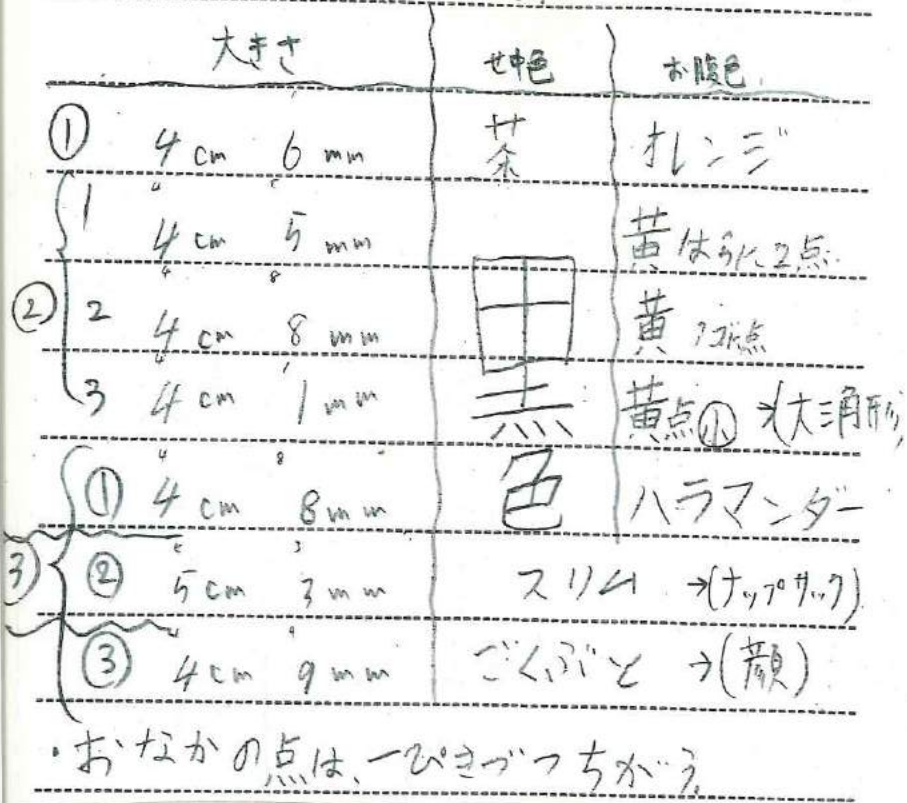 大きさ せ中色 お腹色
① 4cm 6mm 茶 オレンジ
② 1 4cm 5mm 黄 はらに2点
2 4cm 8mm 黒色 黄 点
3 4cm 1mm 黄点小 →(大三角形)
③ ① 4cm 8mm ハラマンダー
② 5cm 3mm スリム →(ナップサック)
③ 4cm 9mm ごくぶと →(顔)
・おなかの点は、一ぴきづつちがう。